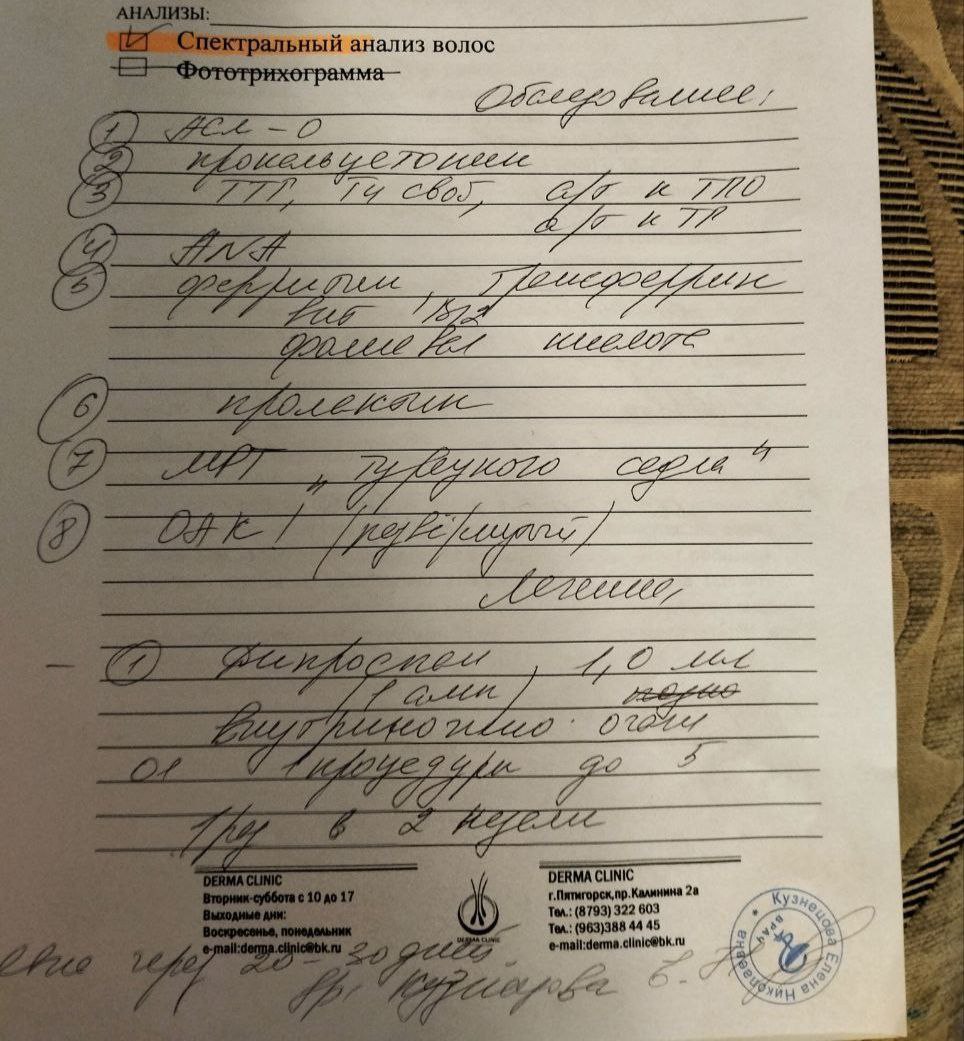 АНАЛИЗЫ:
Спектральный анализ волос
Фототрихограмма
Обследование:
1 АСЛ-О
2 прокальцетонин
3 ТТГ, Т4 своб, а/т к ТПО
а/т к ТГ
4 ANA
5 ферритин, трансферрин
вит В12
фолиевая кислота
6 пролактин
7 МРТ "турецкого седла"
8 ОАК! (развёрнутый)
Лечение:
- 1 Дипроспан, 1,0 мл
(1 амп)
внутрикожно очаги
от 1 процедуры до 5
1 раз в 2 недели
DERMA CLINIC
Вторник-суббота с 10 до 17
Выходные дни:
Воскресенье, понедельник
e-mail:derma.clinic@bk.ru
DERMA CLINIC
DERMA CLINIC
г.Пятигорск,пр.Калинина 2а
Тел.: (8793) 322 603
Тел.: (963)388 44 45
e-mail:derma.clinic@bk.ru
через 20-30 дней
Кузнецова Елена Николаевна
ВРАЧ